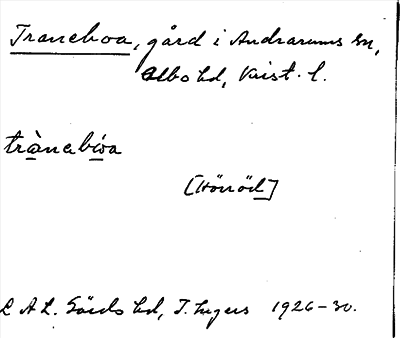 Traneboa, gård i Andrarums sn,
Albo hd, Krist. l.
trànebóa
[Hörröd]
L A L. Gärds hd, I. Ingers 1926-30.